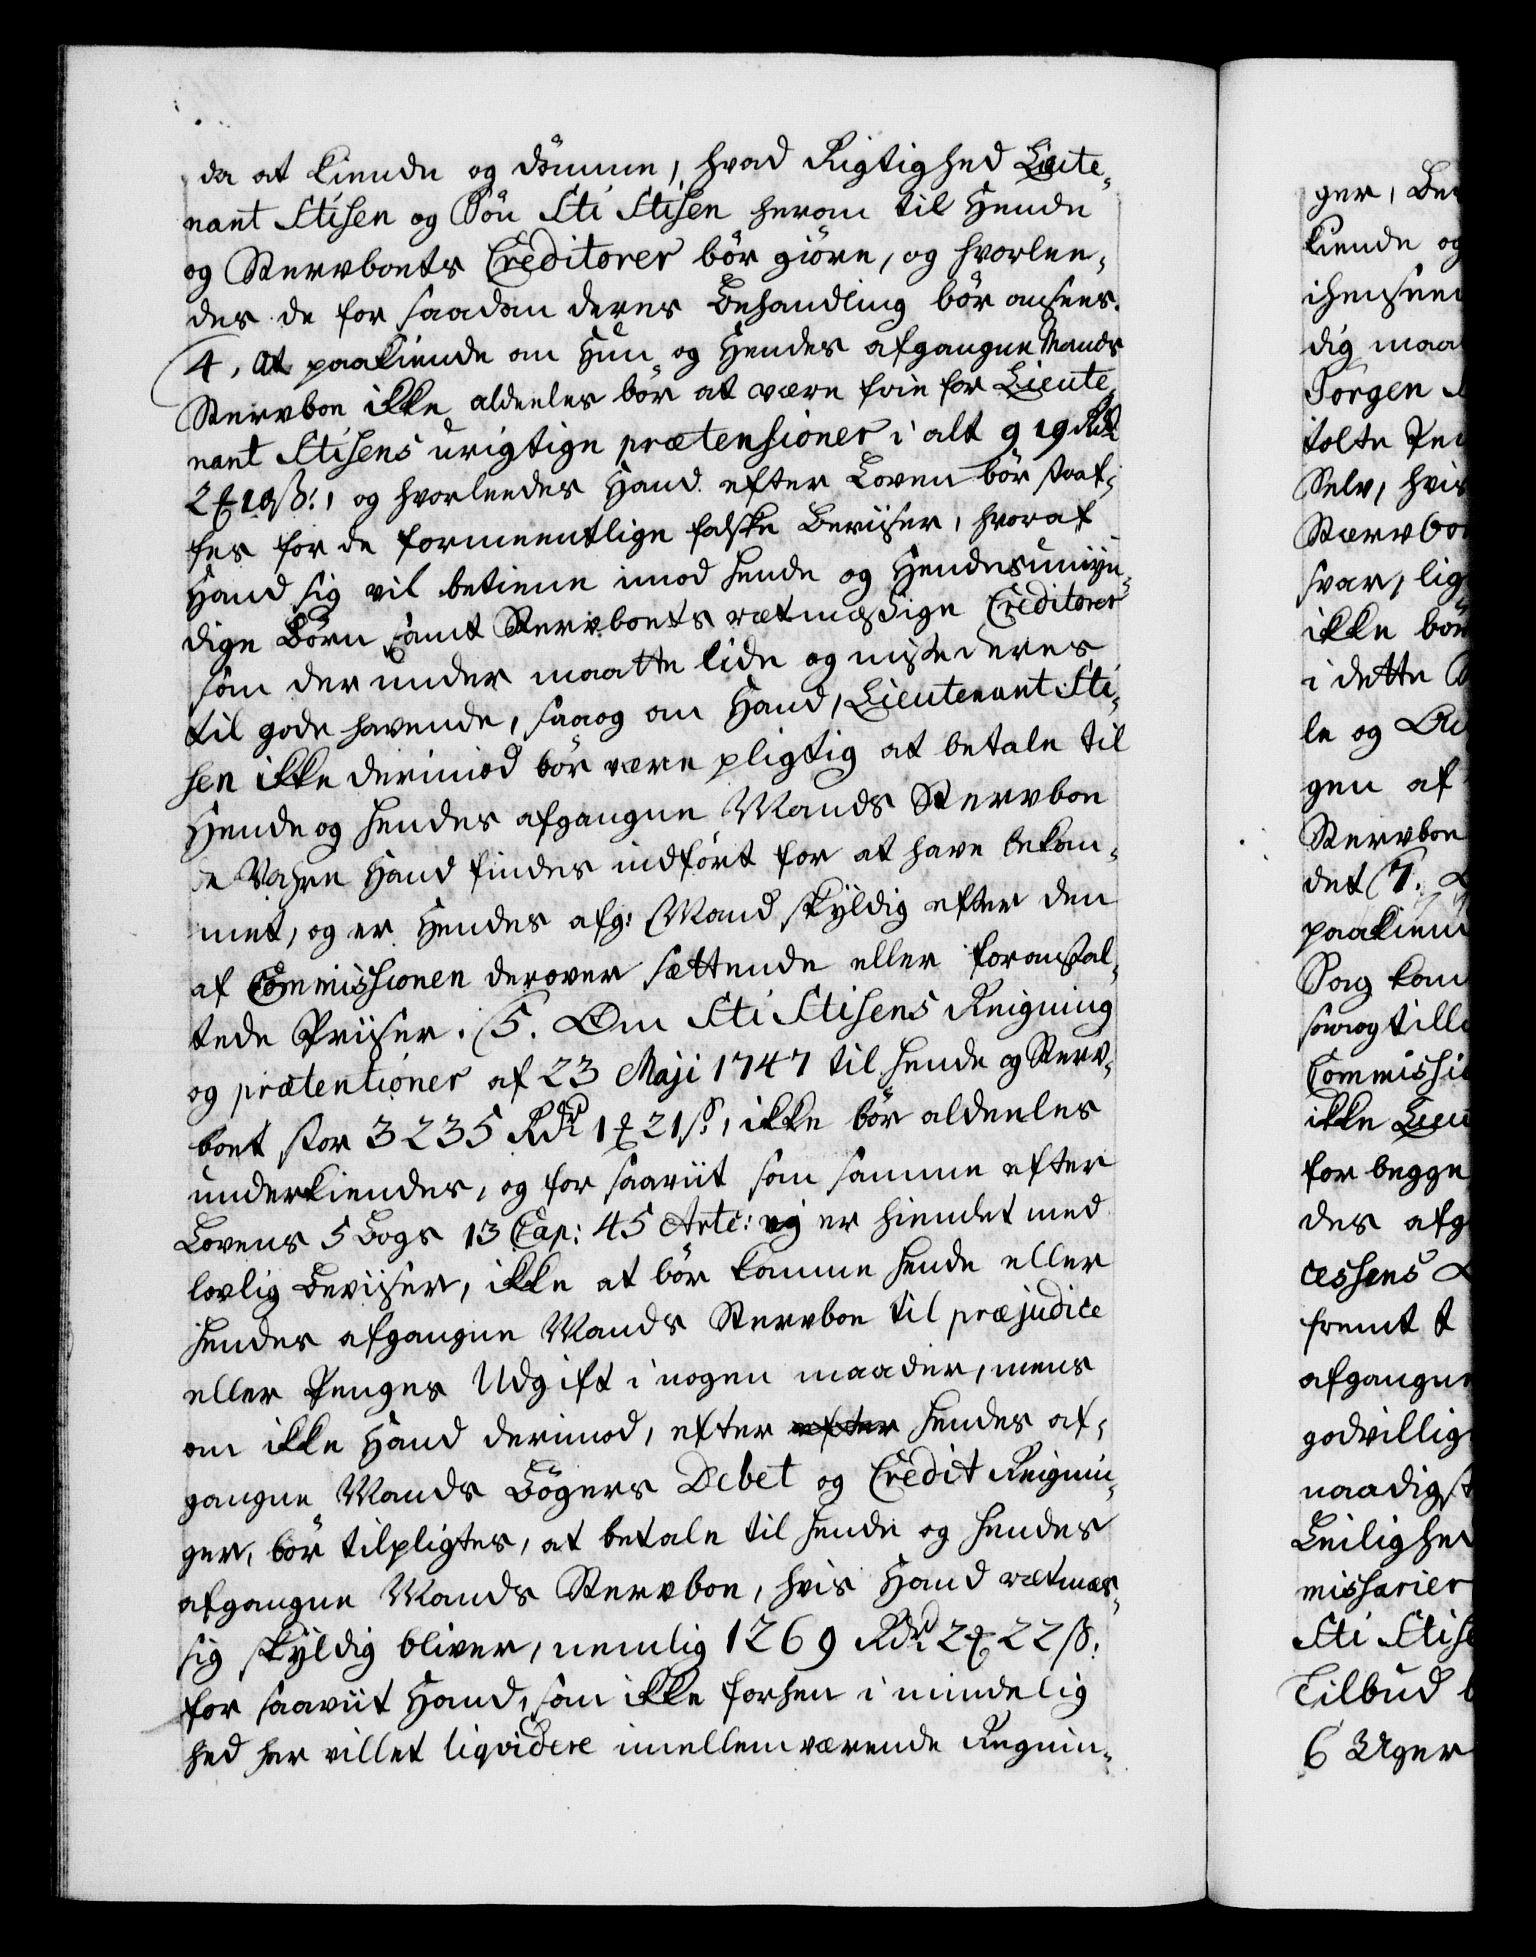 da at kiende og dömme, hvad Rigtighed Lieute-
nant Stisen og Sön Sti Stisen herom til Hende
og Stervboets Creditorer bör giöre, og hvorlee-
des de for saadan deres Behandling bör ansees.
4, At paakiende om Hun og Hendes afgangne Mands
Stervboe ikke aldeeles bör at være frie for Lieute-
nant Stisens urigtige prætensioner i alt 919 Rdr
2 ₰ 10 ß:, og hvorleedes Hand efter Loven bör straf-
fes for de formeentlige falske Beviiser, hvoraf
Hand sig vil betiene imod hende og Hendes umyn-
dige Börn samt Stervboets retmæssige Creditorer
som derunder maatte lide og miste deres
til gode havende, saa og om Hand, Lieutenant Sti-
sen ikke derimod bör være pligtig at betale til
Hende og hendes afgangne Mands Stervboe
de Vahre Hand findes indfört for at have bekom-
met, og er Hendes afg: Mand skyldig efter den
af Commissionen derover sættende eller foranstal-
tede Priiser. 5. Om Sti Stisens Reigning
og prætentioner af 23 Maji 1747 til hende og Sterv-
boet stor 3235 Rdr 1 ₰ 21 ß, ikke bör aldeeles
underkiendes, og for saaviit som samme efter
Lovens 5 Bogs 13 Cap: 45 Artc: ej er hiemlet med
lovlig Beviiser, ikke at bör komme hende eller
hendes afgangne Mands Stervboe til præjudice
eller Penges Udgift i nogen maader, mens
om ikke Hand derimod, efter efter hendes af-
gangne Mands Bögers Debet og Credit Reignin-
ger, bör tilpligtes, at betale til hende og hendes
afgangne Mands Stervboe, hvis Hand retmæs-
sig skyldig bliver, nemlig 1269 Rdr 2 ₰ 22 ß:
for saaviit Hand, som ikke forhen i mindelig
hed har villet liqvidere imellemværende Regnin-
ger, Be
kiende og
ihenseen
dig maa
Jörgen
tolte Pen
Selv, hvis
Stervboe
svar, lig
ikke bör
i dette
le og
gen af
Stervboe
det 7.
paakiend
Sag kom
saa og till
Commissio
ikke Lieu
for begge
des afg
cessens
fremt
afgangne
godvillig
naadigst
Leilighed
missarier
Sti Stise
Tilbud
6 Uger